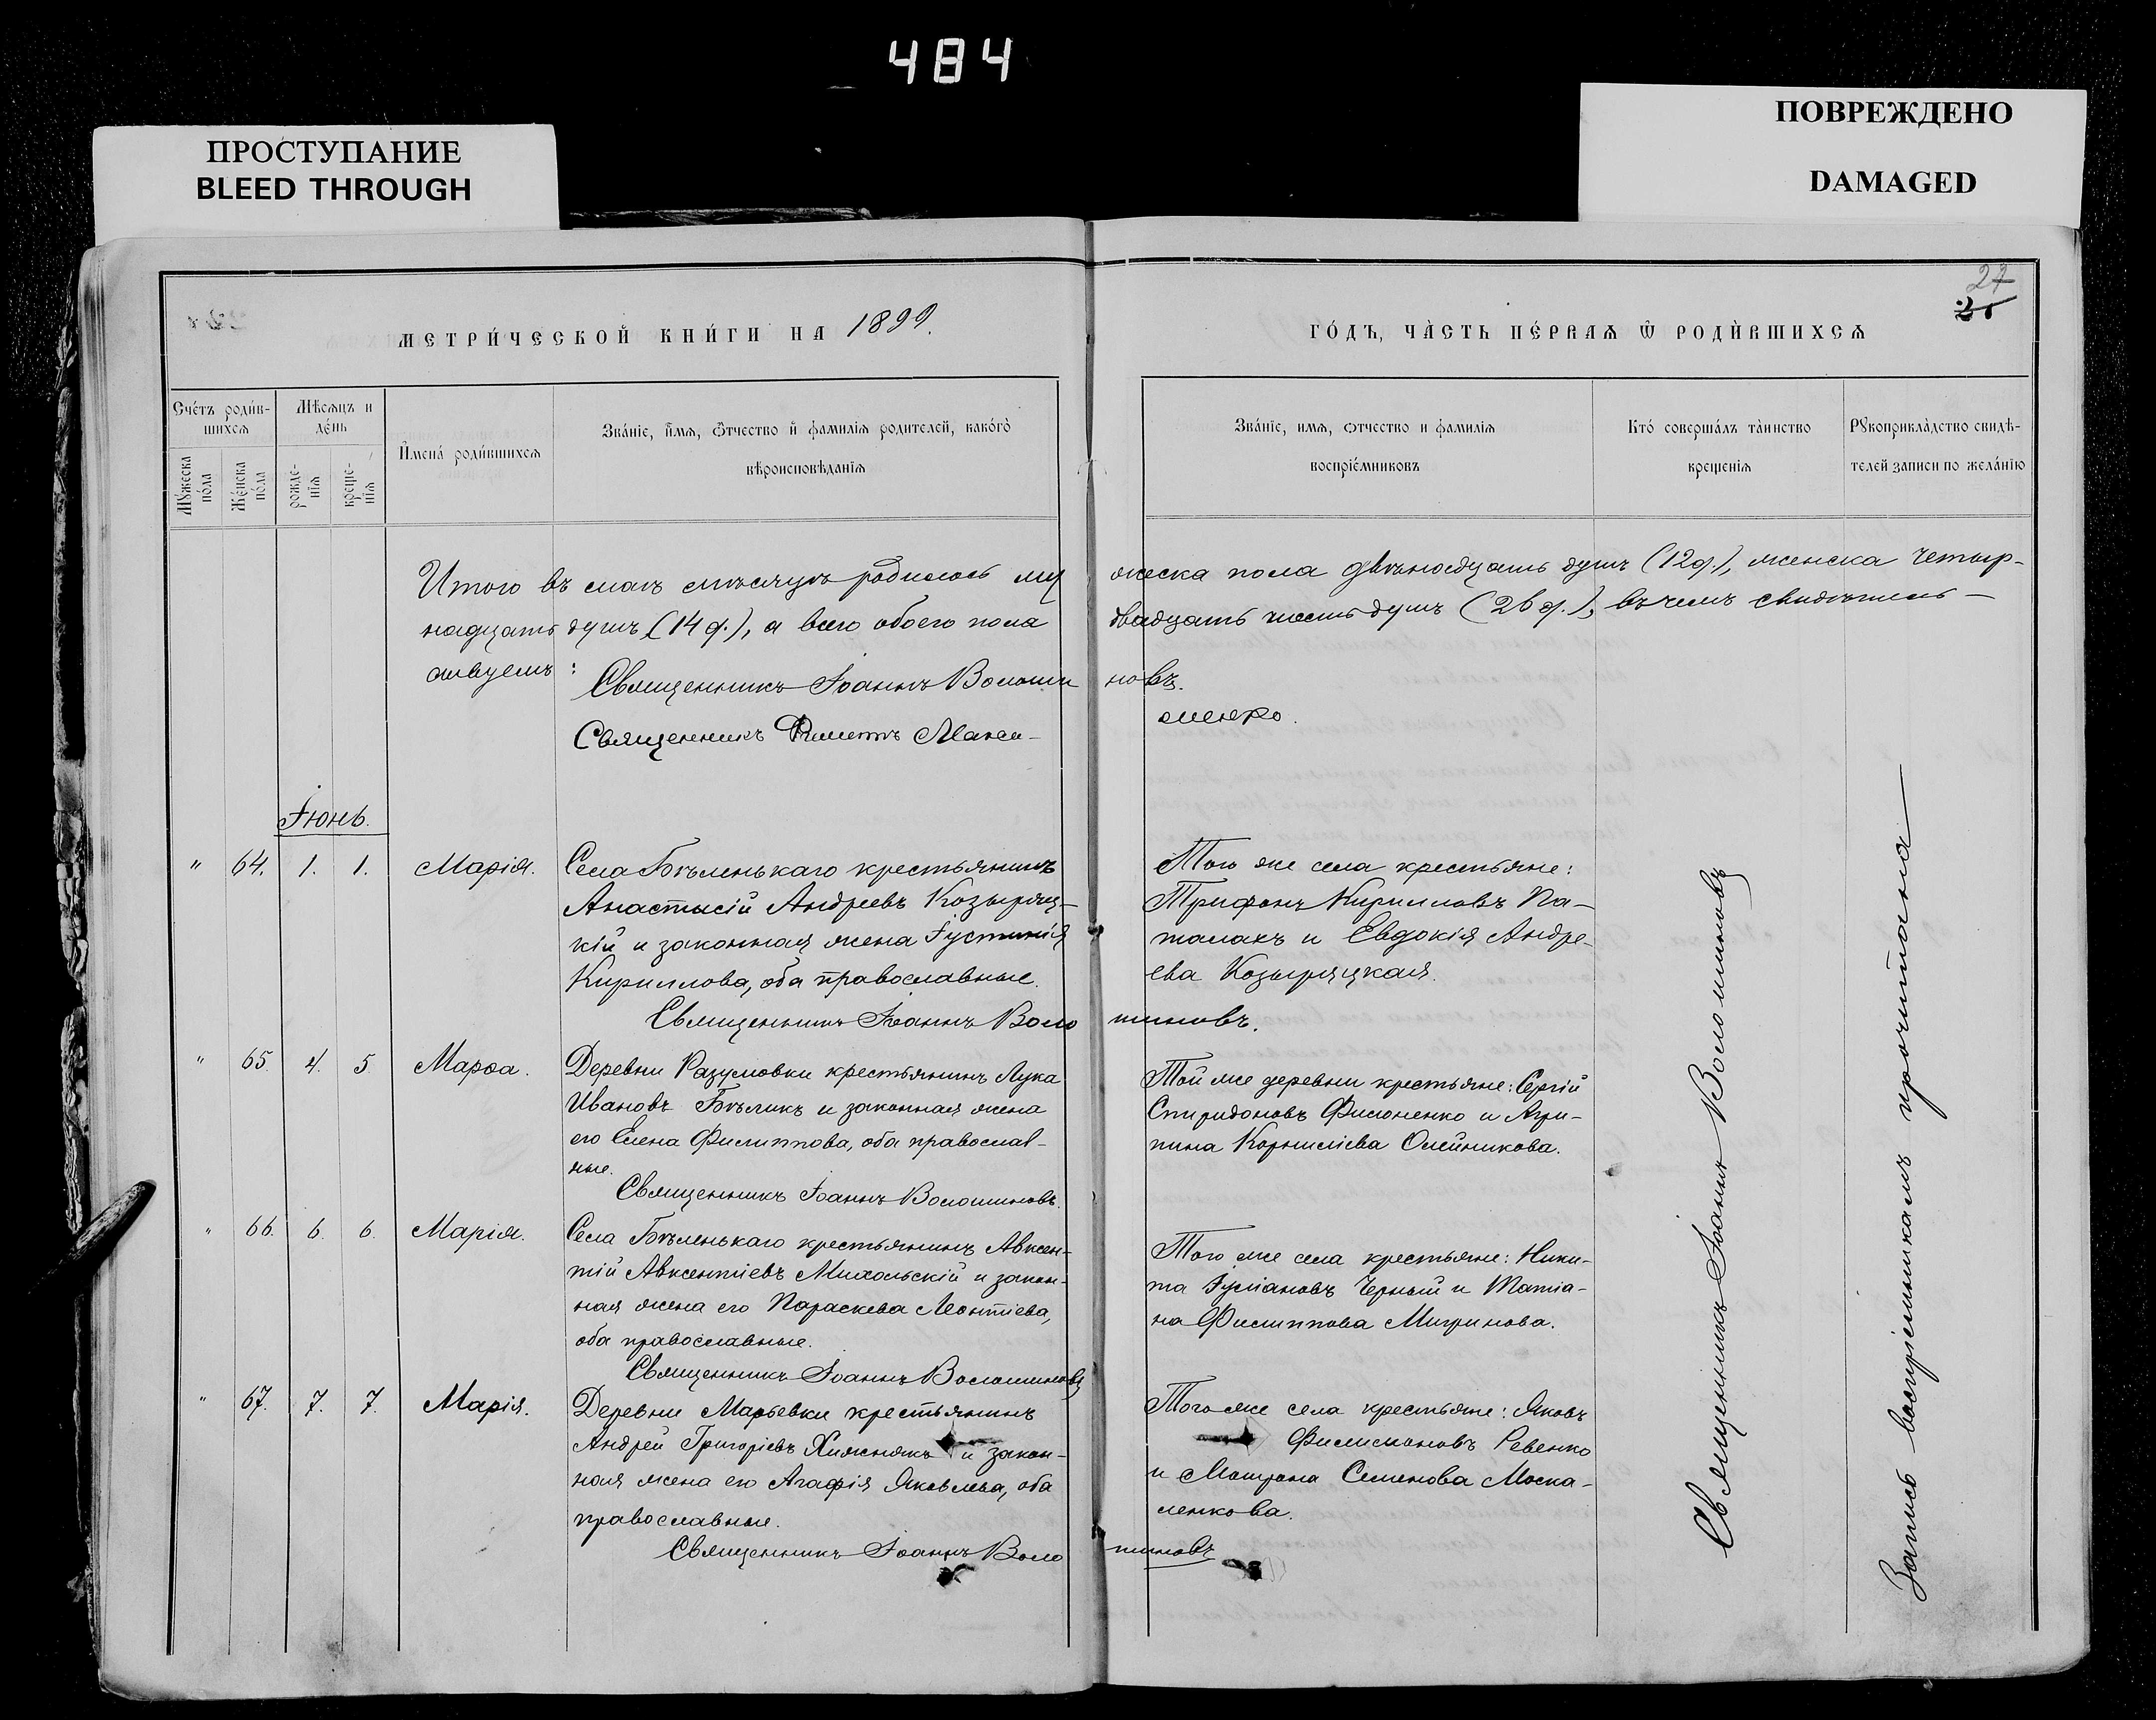 484
ПРОСТУПАНИЕ
BLEED THROUGH
ПОВРЕЖДЕНО
DAMAGED
27
МЕТРИ́ЧЕСКОЙ КНИ́ГИ НА 1899.
ГО́ДЪ, ЧА̀СТЬ ПЕ́РВАѦ Ѿ РОДЍВШИХСѦ
Сче́тъ роди́в-
шихсѧ
Мѣсѧцъ и
де́нь
Мꙋ́жеска
по́ла
Же́нска
по́ла
рожде́-
нїѧ
креще́-
нїѧ
И҆мена̀ роди́вшихсѧ
Зва́нїе, и҆́мѧ, ѻ҆́тчество и҆ фамилїѧ родителей, како́гѡ
вѣроисповѣ́данїѧ
Зва́нїе, имѧ, ѻтчество и фамилїѧ
воспрїе́мниковъ
Кто́ соверша́лъ та̀инство
крещенїѧ
Рꙋкоприкла́дство свидѣ́-
телей записи по жела́нїю
Итого въ маѣ мѣсяцѣ родилось му
жеска пола двѣнадцать душъ (12 д.), женска четыр-
надцать душъ (14 д.), а всего обоего пола
двадцать шесть душъ (26 д.), въ чемъ свидѣтель-
ствуемъ:
Священникъ Іоаннъ Волоши новъ.
Священникъ Макси-
менко.
Іюнь.
" 64. 1. 1. Марія.
Села Бѣленькаго крестьянинъ
Анастасій Андреевъ Козыряц-
кій и законная жена Іустинія
Кириллова, оба православные.
Священникъ Іоаннъ Воло шиновъ.
Того же села крестьяне:
Трифонъ Кирилловъ Па-
талахъ и Евдокія Андре-
ева Козыряцкая.
" 65. 4. 5. Марѳа.
Деревни Разумовки крестьянинъ Лука
Ивановъ Бѣликъ и законная жена
его Елена Филиппова, оба православ-
ные.
Священникъ Іоаннъ Волошиновъ.
Той же деревни крестьяне: Сергій
Спиридоновъ Филоненко и Агри-
пина Корниліева Олейникова.
" 66. 6. 6. Марія.
Села Бѣленькаго крестьянинъ Авксен-
тій Авксентіевъ Михальскій и закон-
ная жена его Параскева Леонтіева,
оба православные.
Священникъ Іоаннъ Волошиновъ
Того же села крестьяне: Ники-
та Іуліановъ Черный и Татіа-
на Филиппова Мигринова.
" 67. 7. 7. Марія.
Деревни Марьевки крестьянинъ
Андрей Григоріевъ Хижнякъ и закон-
ная жена его Агафія Яковлева, оба
православные.
Священникъ Іоаннъ Воло шиновъ
Того же села крестьяне: Яковъ
Филимоновъ Ревенко
и Матрона Семенова Моска-
ленкова.
Священникъ Іоаннъ Волошиновъ
Запись воспріемникамъ прочитана